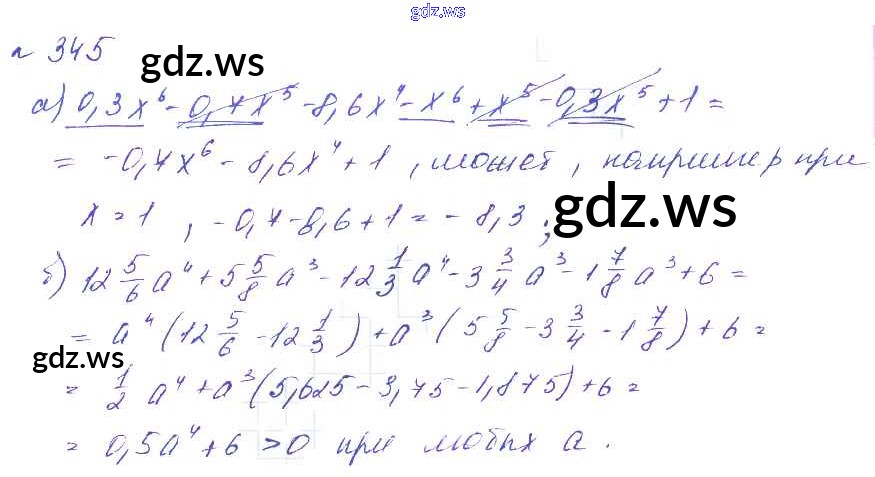 gdz.ws
n 345
gdz.ws
а) 0,3x⁶ - 0,7x⁵ - 8,6x⁴ - x⁶ + x⁵ - 0,3x⁵ + 1 =
= -0,7x⁶ - 8,6x⁴ + 1, может, например при
x = 1, -0,7 - 8,6 + 1 = -8,3;
gdz.ws
б) 12 5/6 a⁴ + 5 5/8 a³ - 12 1/3 a⁴ - 3 3/4 a³ - 1 7/8 a³ + 6 =
= a⁴ (12 5/6 - 12 1/3) + a³ (5 5/8 - 3 3/4 - 1 7/8) + 6 =
gdz.ws
= 1/2 a⁴ + a³ (5,625 - 3,75 - 1,875) + 6 =
= 0,5a⁴ + 6 > 0 при любых a.